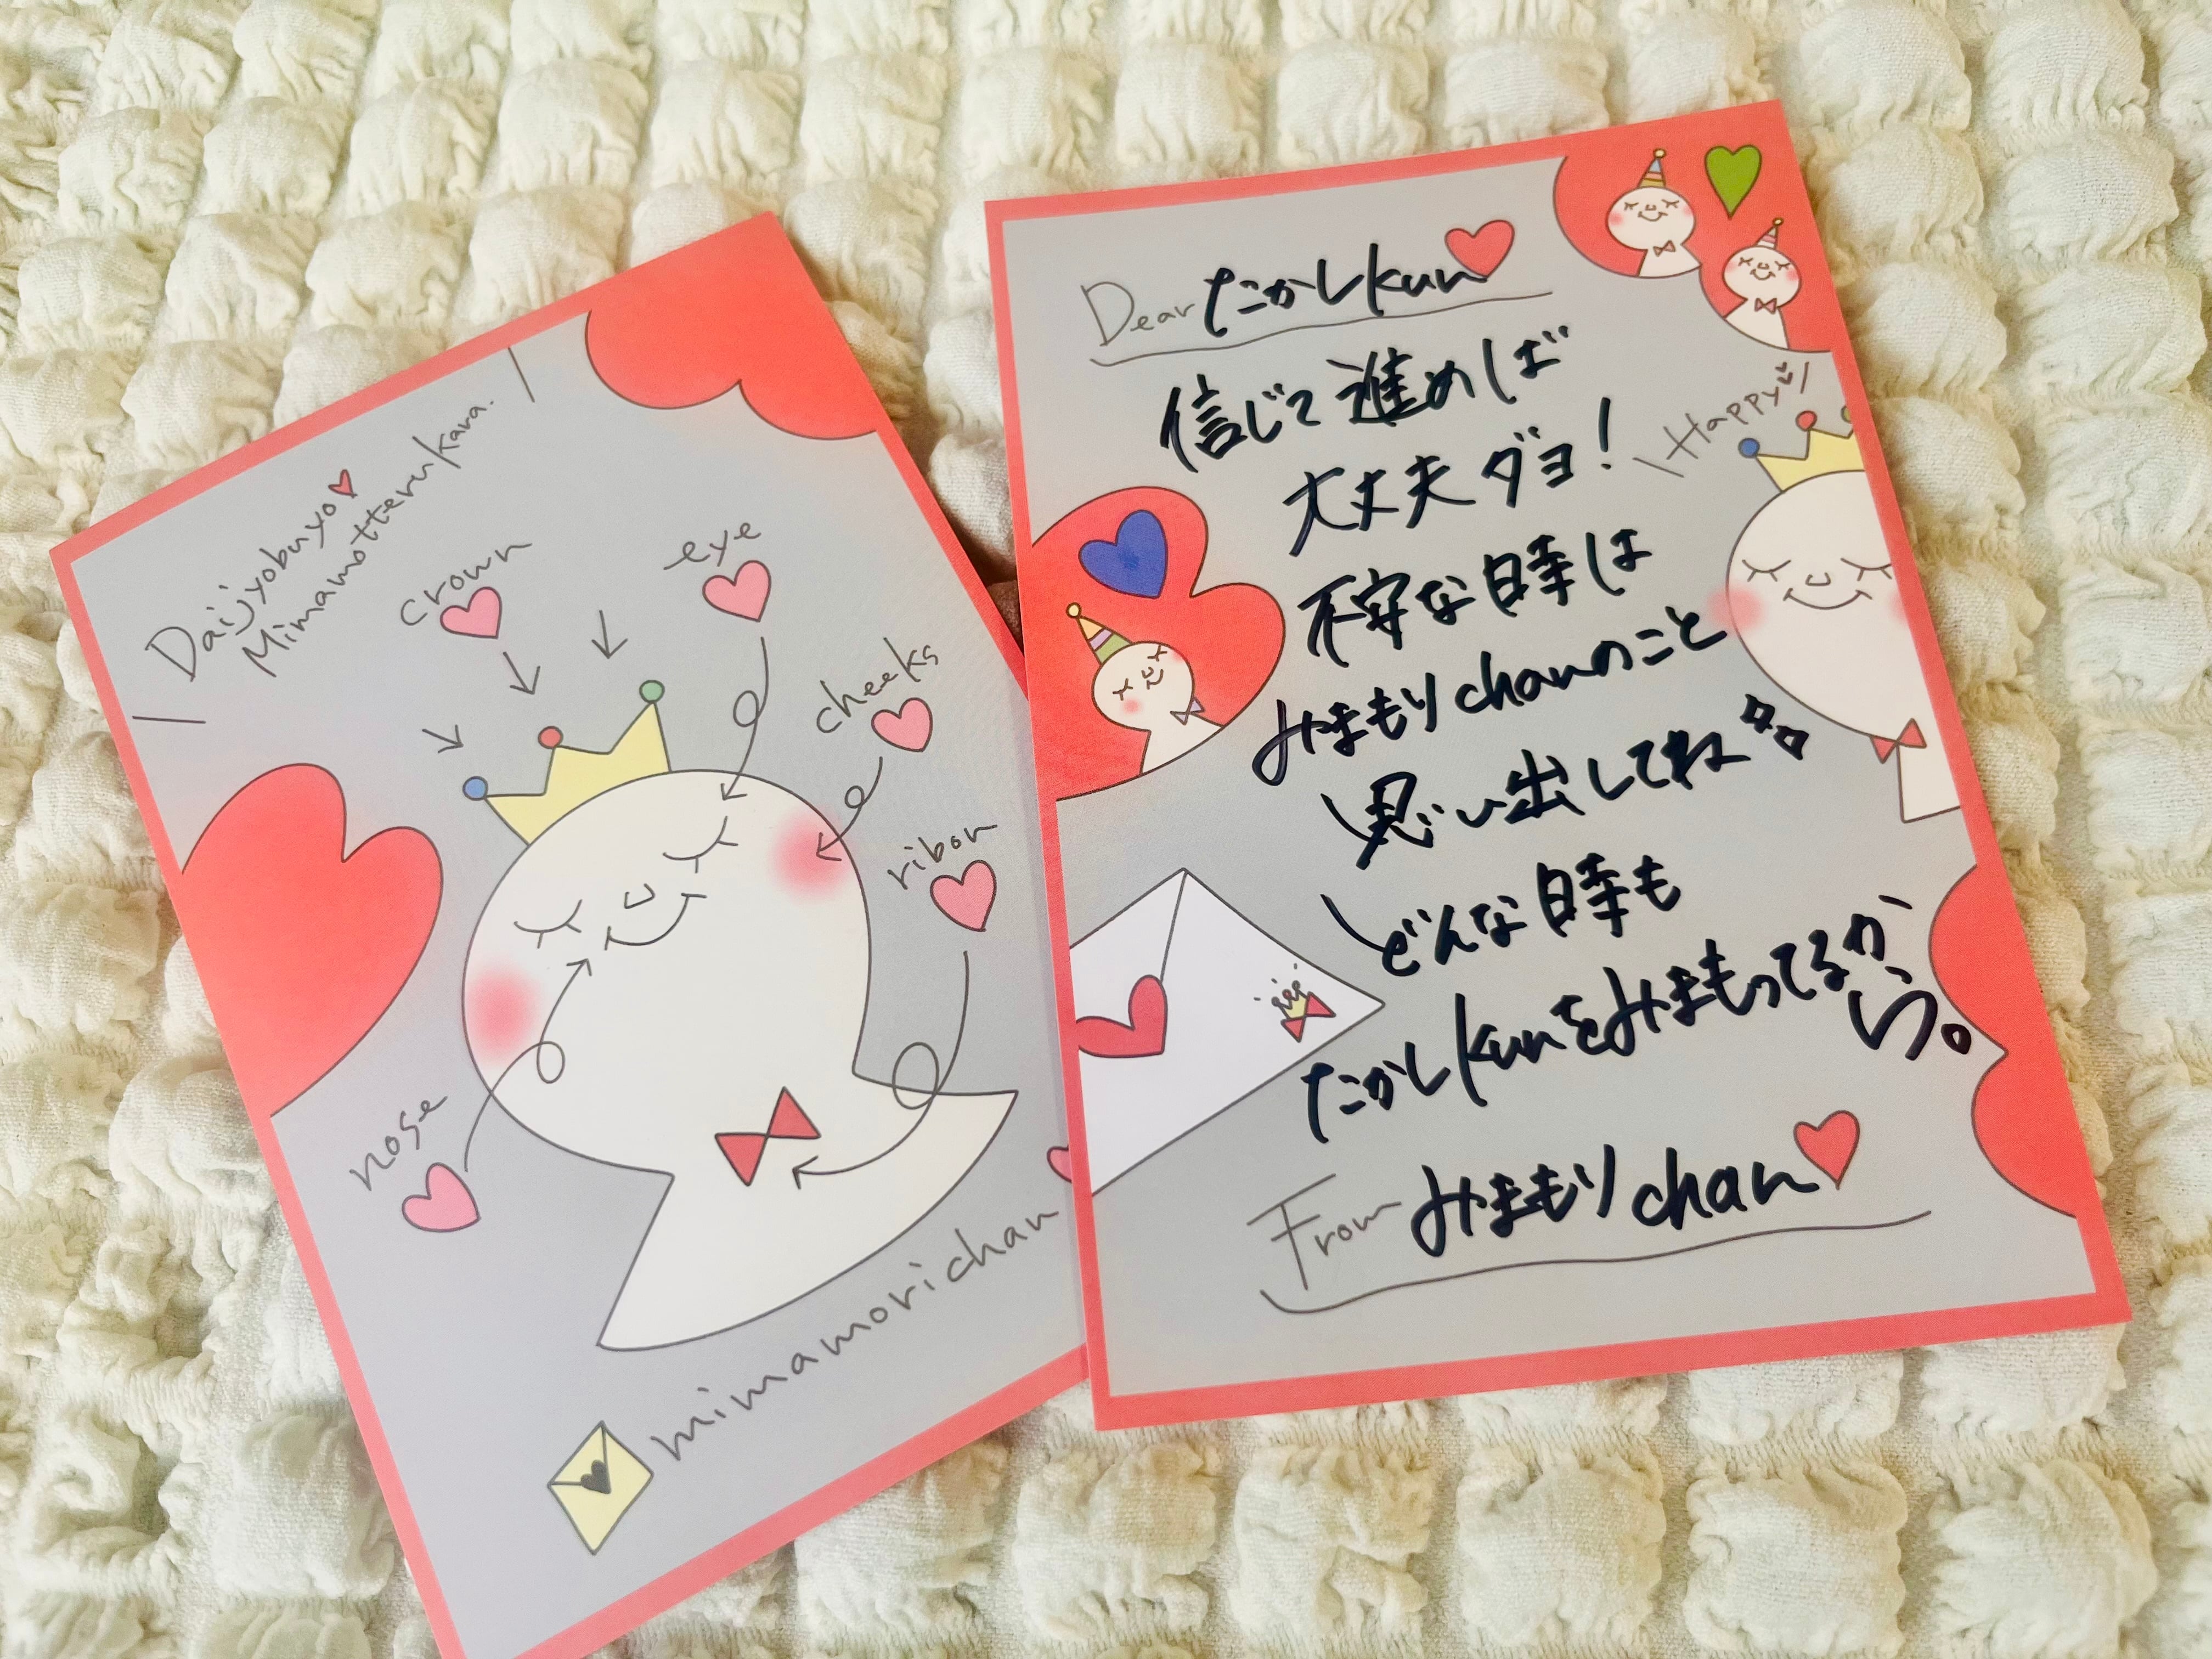 Daijyobuyo
Mimamotterukara.
crown
eye
cheeks
ribon
nose
mimamorichan
Dear たかしkun
信じて進めば
大丈夫ダヨ!
Happy
不安な時は
みまもりchanのこと
思い出してね
どんな時も
たかしkunをみまもってるか
ら。
From みまもりchan